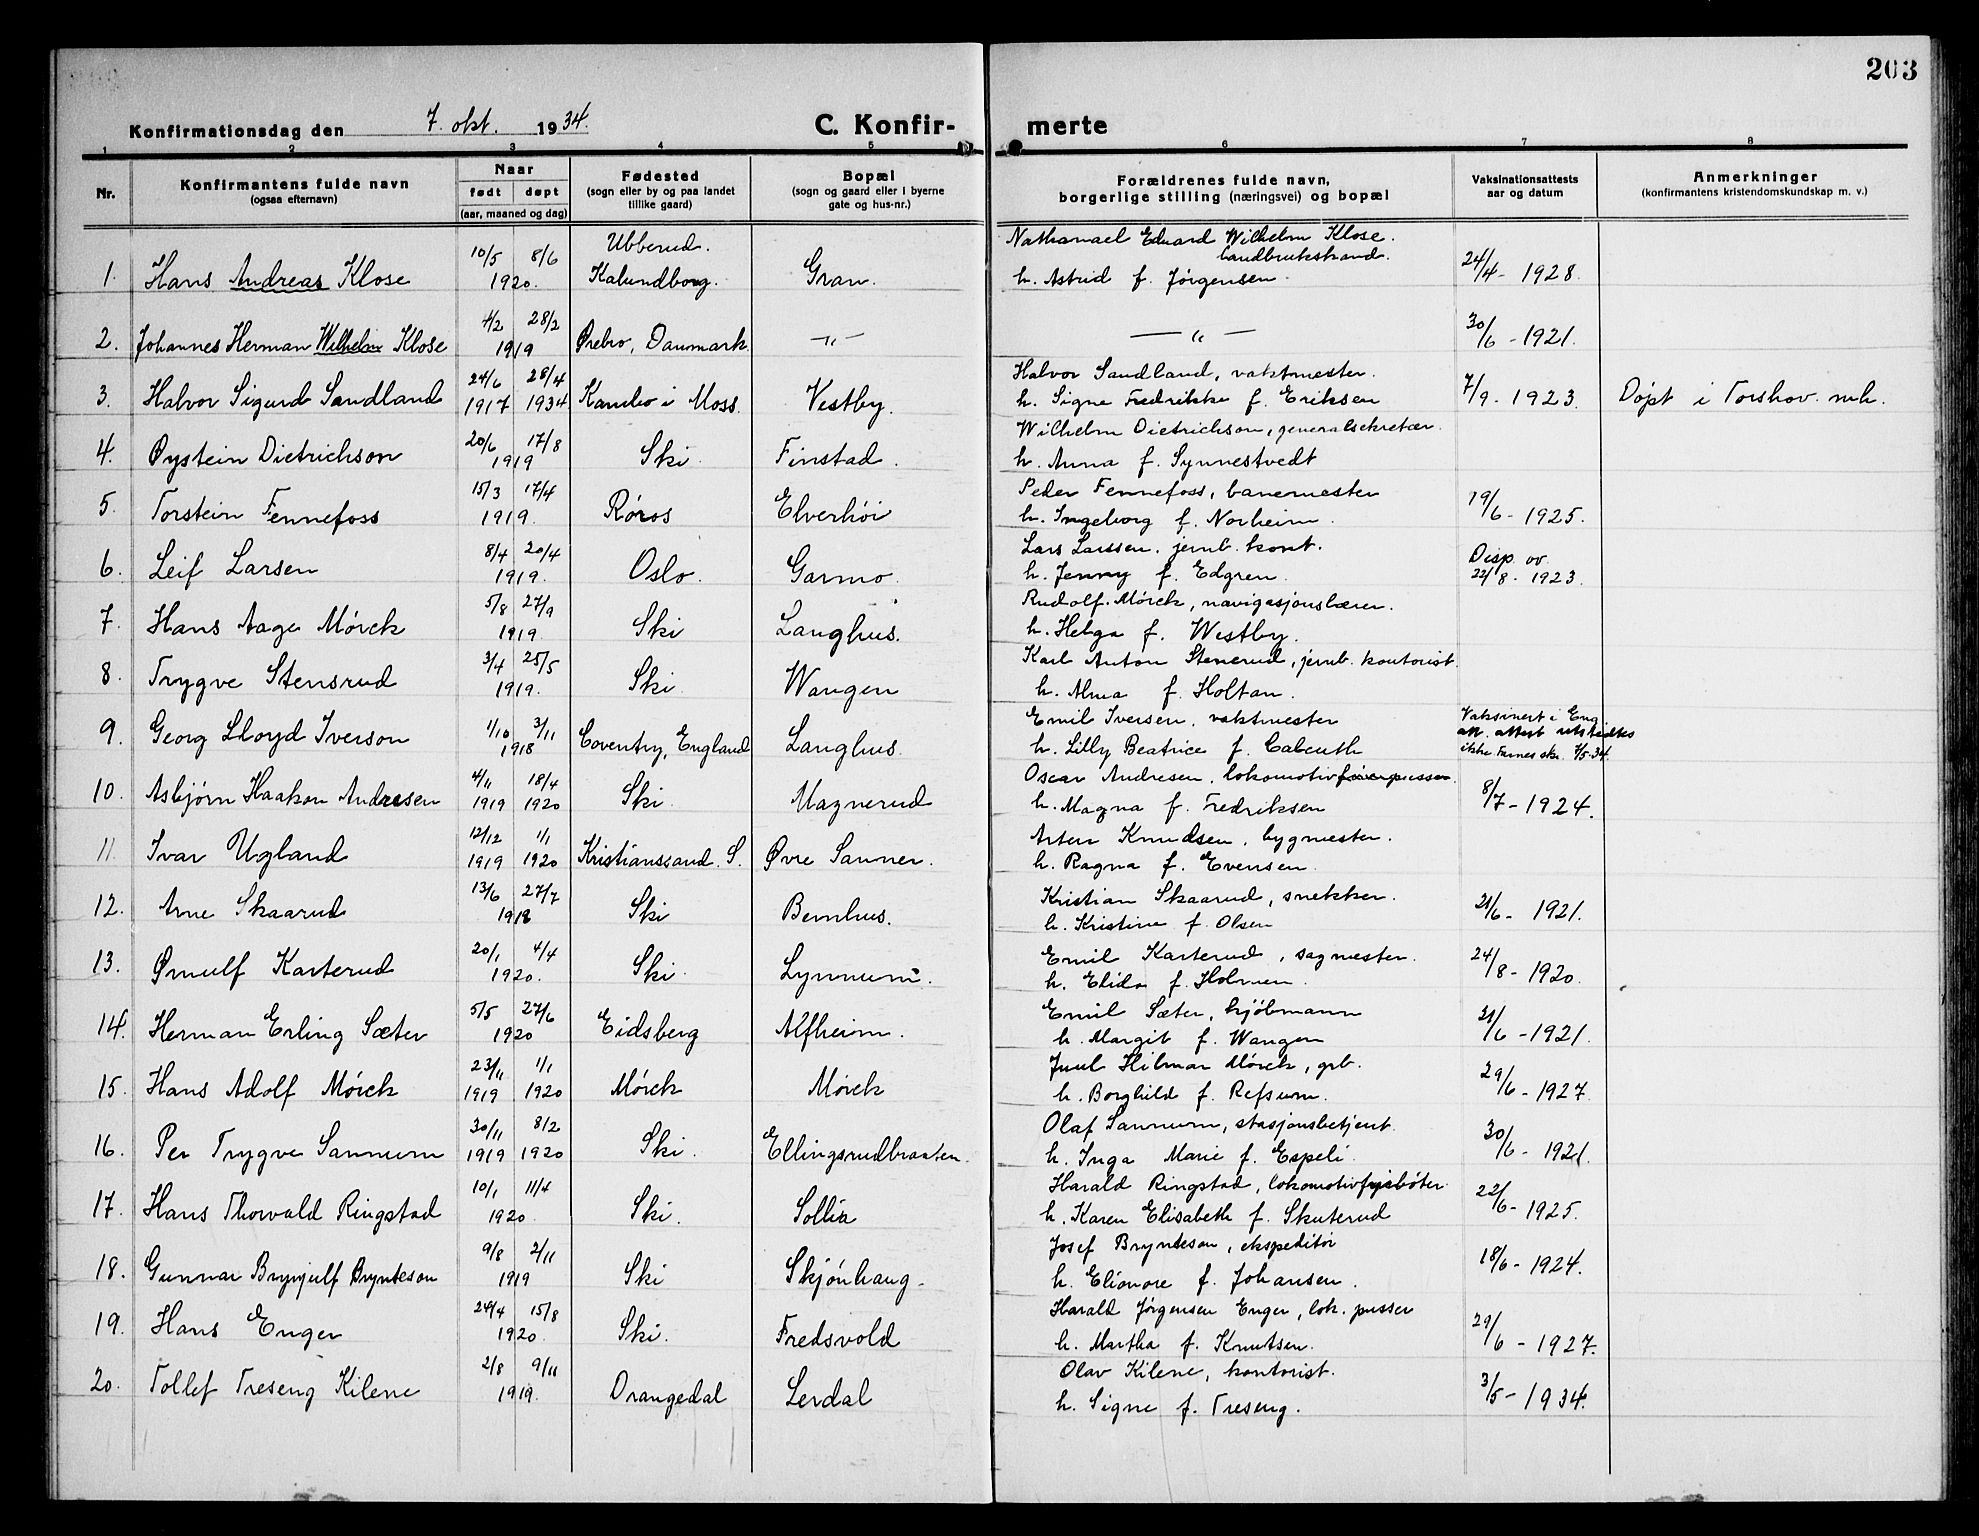 203
Konfirmationsdag den 7. okt. 1934.
C. Konfir-
merte
1 2 3 4 5 6 7 8
Nr.
Konfirmantens fulde navn
(ogsaa efternavn)
Naar
født døpt
(aar, maaned og dag)
Fødested
(sogn eller by og paa landet
tillike gaard)
Bopæl
(sogn og gaard eller i byerne
gate og hus-nr.)
Forældrenes fulde navn,
borgerlige stilling (næringsvei) og bopæl
Vaksinationsattests
aar og datum
Anmerkninger
(konfirmantens kristendomskundskap m. v.)
10/5 8/6 Ubberud. Nathanael Eduard Wilhelm Klose.
landbrukskand.
1. Hans Andreas Klose 1920. Kalundborg. Gran. h. Astrid f. Jørgensen 24/4 - 1928.
4/2 28/2
2. Johannes Herman Wilhelm Klose 1919 Ørebro, Danmark. —"— —"— 30/6 - 1921.
24/6 28/4 Halvor Sandland, vaktmester.
3. Halvor Sigurd Sandland 1917 1934 Kambo i Moss. Vestby. h. Signe Fredrikke f. Eriksen 7/9 - 1923. Døpt i Torshov mh.
20/6 17/8 Wilhelm Dietrichson, generalsekretær.
4. Øystein Dietrichson 1919 Ski. Finstad. h. Anna f. Synnestvedt
15/3 17/4 Peder Fennefoss, banemester
5. Torstein Fennefoss 1919. Røros Elverhöi h. Ingeborg f. Norheim. 19/6 - 1925.
8/4 20/4 Lars Larssen. jernb. kont. Disp. av
6. Leif Larsen 1919. Oslo. Garmo. h. Jenny f. Edgren. 22/8 - 1923.
5/8 27/9 Rudolf Mörck, navigasjonslærer.
7. Hans Aage Mörck 1919. Ski Langhus. h. Helga f. Westby.
3/4 25/5 Karl Anton Stenerud, jernb. kontorist.
8. Trygve Stensrud 1919. Ski. Wangen h. Alma f. Holtan.
1/10 3/11 Emil Iversen, vaktmester Vaksinert i Eng.
att. attest utstedtes
9. Georg Lloyd Iverson 1918 Coventry, England Langhus. h. Lilly Beatrice f. ikke. 1/5-34.
4/11 18/4 Oscar Andresen, lokomotivpusser.
10. Asbjørn Haakon Andresen 1919 1920 Ski. Magnerud h. Magna f. Fredriksen 8/7 - 1924.
12/12 1/1 Knudsen, bygmester.
11. Ivar Ugland 1919 1920 Kristianssand. S. Øvre Sanner. h. Ragna f. Evensen.
13/6 27/7 Kristian Skaarud, snekker.
12. Arne Skaarud 1918 Ski Bernhus. h. Kristine f. Olsen 21/6 - 1921.
20/1 4/4 Emil Karterud, sagmester.
13. Ørnulf Karterud 1920. Ski. Lynnum. h. Elida f. Holmen. 24/8 - 1920.
5/5 27/6 Emil Sæter, kjöbmann
14. Herman Erling Sæter 1920 Eidsberg Alfheim. h. Margit f. Wangen 21/6 - 1921.
23/11 1/1 Juul Hilmar Mörck, grb.
15. Hans Adolf Mörck 1919 1920 Mörck Mörck h. Borghild f. Refsum. 29/6 - 1927.
30/11 8/2 Olaf Sannum, stasjonsbetjent.
16. Per Trygve Sannum 1919 1920 Ski. Ellingsrudbraaten. h. Inga Marie f. Espeli. 30/6 - 1921.
10/1 11/4 Harald Ringstad, lokomotivfyrböter
17. Hans Thorvald Ringstad 1920. Ski. Sollia h. Karen Elisabeth f. Skuterud 22/6 - 1925.
9/8 2/11 Josef Brynteson, ekspeditör
18. Gunnar Brynjulf Brynteson 1919 Ski Skjönhaug. h. Elionore f. Johansen. 18/6 - 1924.
24/4 15/8 Harald Jørgensen Enger, lok. pusser
19. Hans Enger 1920. Ski. Fredsvold h. Martha f. Knutsen. 29/6 - 1927.
2/8 9/11 Olav Kilene, kontorist.
20. Tollef Treseng Kilene 1919. Drangedal Lerdal h. Signe f. Treseng. 3/5 - 1934.